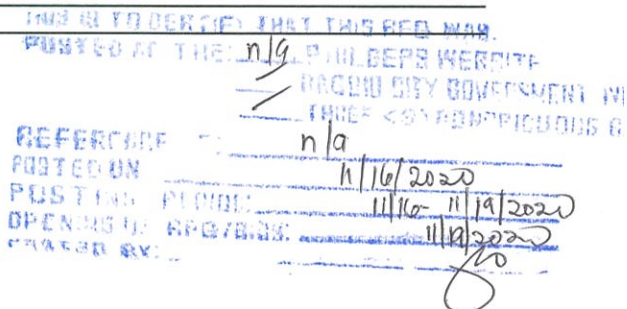 THIS IS TO CERTIFY THAT THIS RFQ WAS
POSTED AT THE: n/a PHILGEPS WEBSITE
BAGUIO CITY GOVERNMENT
THREE (3) CONSPICUOUS
REFERENCE n/a
POSTED ON 11/16/2020
POSTING PERIOD: 11/16- 11/19/2020
OPENING OF RFQ/BIDS: 11/19/2020
POSTED BY: